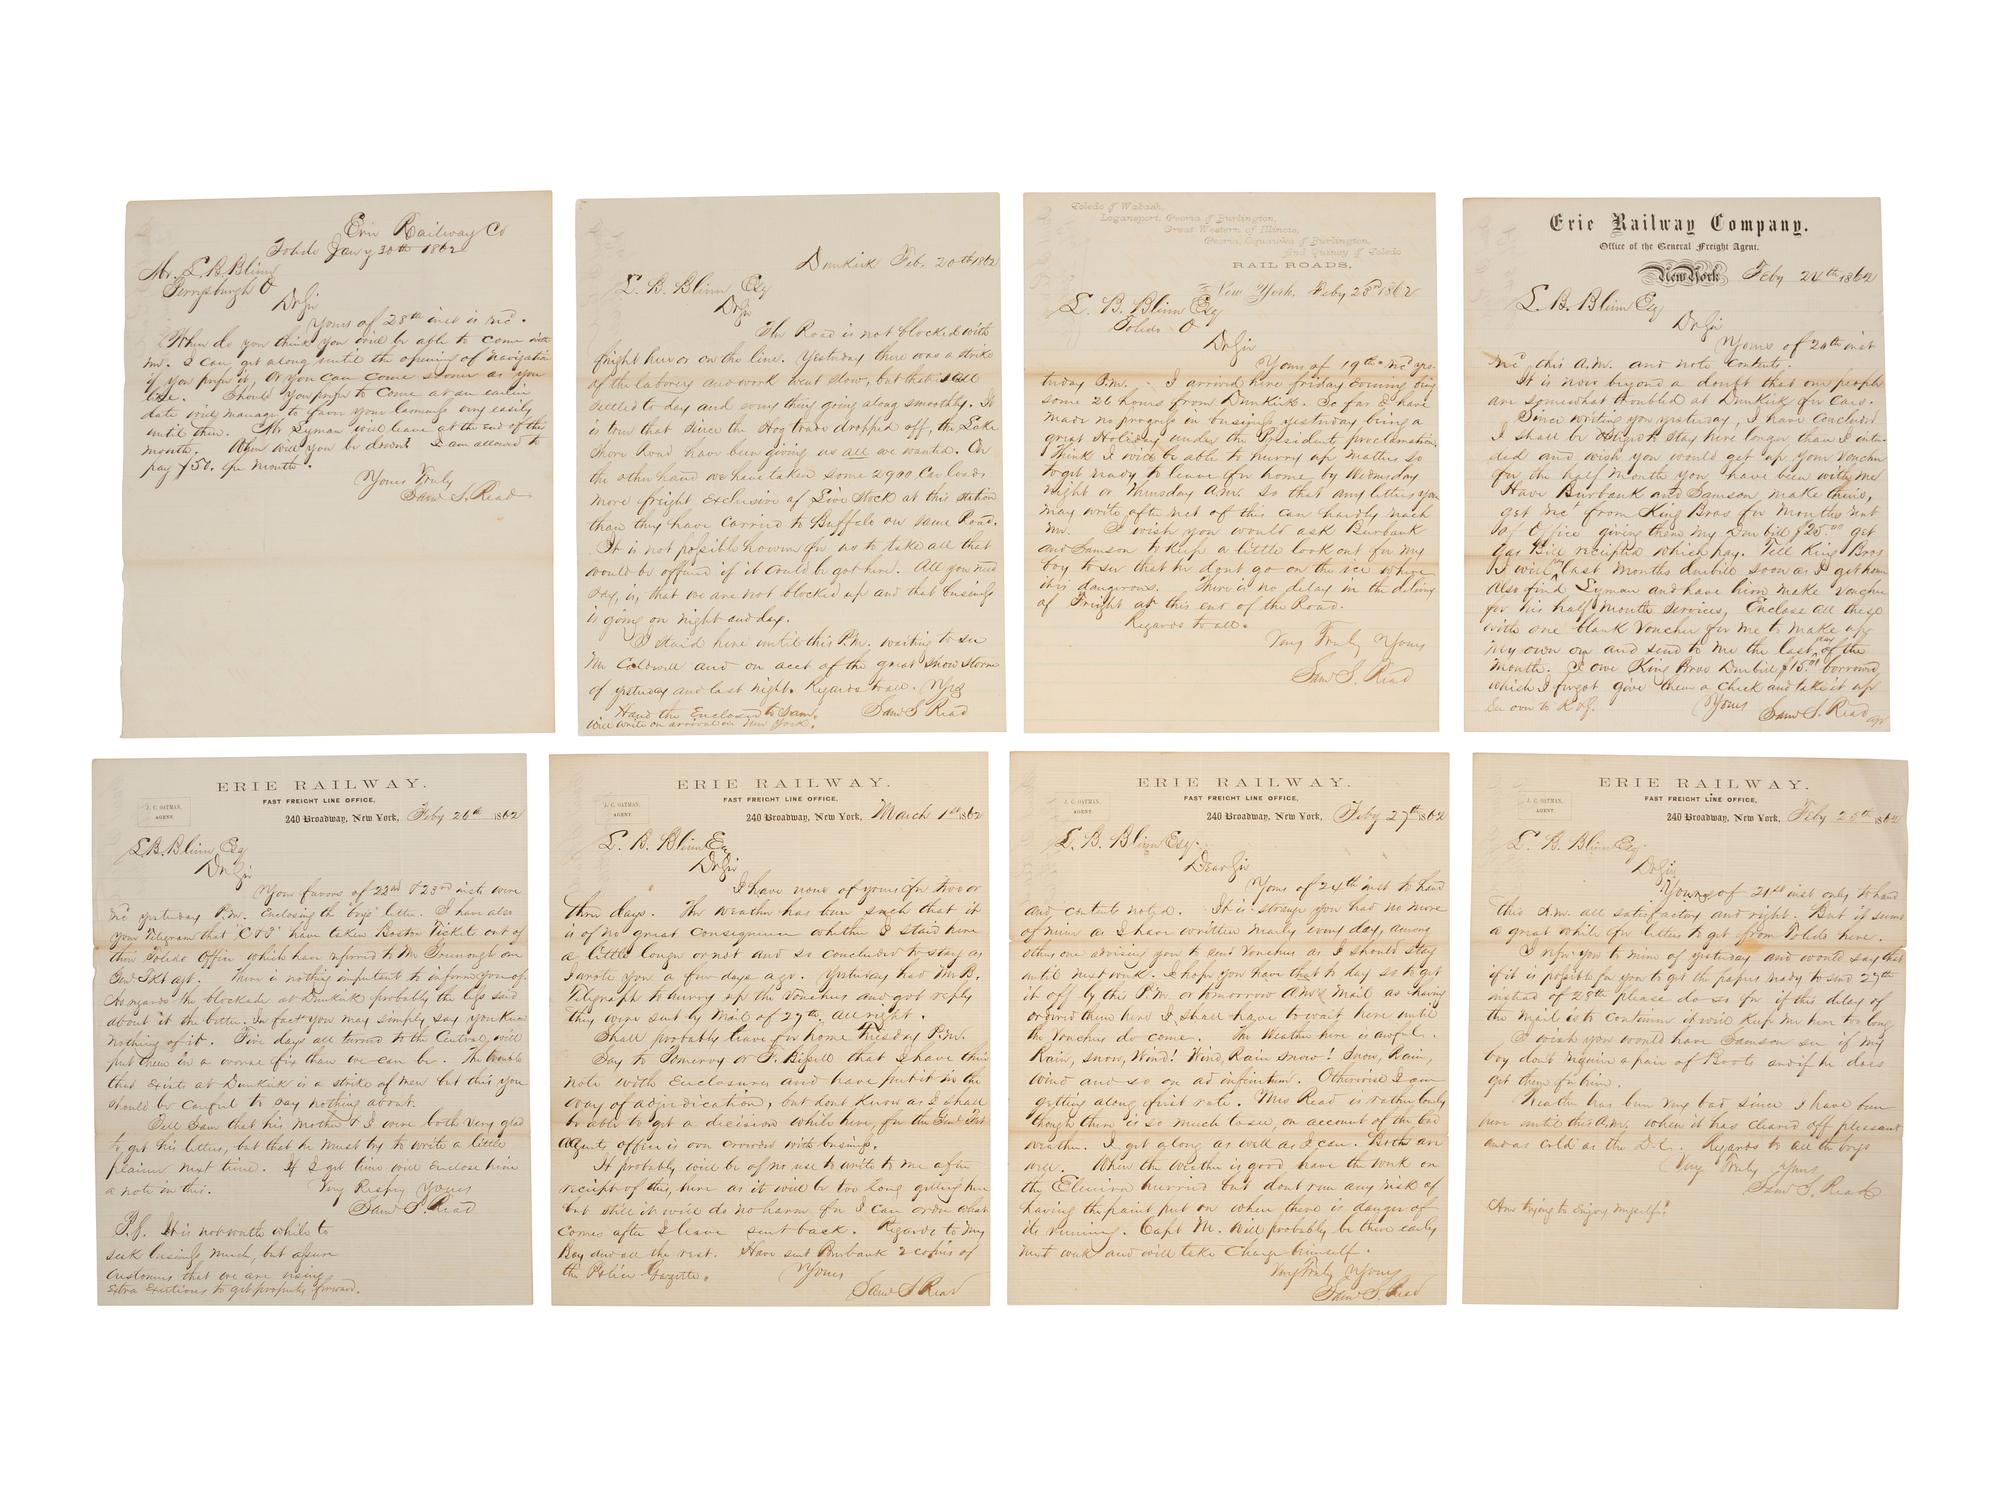 Erie Railway Co
Toledo Jany 30th 1862
Mr. L. B. Blinn
Perrysburgh O
Dr Sir
Yours of 28th inst is recd.
When do you think you will be able to come with
me. I can get along until the opening of navigation
if you prefer it, Or you can come sooner as you
like. Should you prefer to come at an earlier
date will manage to favor your coming very easily
until then. Mr Lyman will leave at the end of this
month. When will you be down? I am allowed to
pay $50. per month.
Yours Truly
Saml S. Read
Dunkirk Feb. 20th 1862
L. B. Blinn Esq
Dr Sir
The Road is not blocked with
freight here or on the line. Yesterday there was a strike
of the laborers and work went slow, but that is all
settled to day and every thing going along smoothly. It
is true that since the Hog trade dropped off, the Lake
Shore Road have been giving us all we wanted. On
the other hand we have taken some 2900 Car loads
more freight exclusive of Live Stock at this station
than they have carried to Buffalo on same Road.
It is not possible however for us to take all that
would be offered if it could be got here. All you need
say, is, that we are not blocked up and that business
is going on night and day.
I staid here until this P.M. waiting to see
Mr Caldwell and on acct of the great snow storm
of yesterday and last night. Regards to all. Yrs
Hand the Enclosed to Sam. Saml S Read
Will write on arrival in New York.
Toledo & Wabash,
Logansport, Peoria & Burlington,
Great Western of Illinois,
Peoria, Oquawka & Burlington,
And Quincy & Toledo
RAIL ROADS.
New York, Feby 23rd 1862
L. B. Blinn Esq
Toledo O
Dr Sir
Yours of 19th recd yes-
terday P.M. I arrived here friday Evening being
some 26 hours from Dunkirk. So far I have
made no progress in business yesterday being a
great Holiday under the Presidents proclamation.
Think I will be able to hurry up matters so
to get ready to leave for home by Wednesday
night or Thursday A.M. so that any letters you
may write after rect of this can hardly reach
me. I wish you would ask Burbank
and Samson to keep a little look out for my
boy to see that he dont go on the ice where
it is dangerous. There is no delay in the delivery
of Freight at this end of the Road.
Regards to all.
Very Truly Yours
Saml S. Read
Erie Railway Company.
Office of the General Freight Agent.
New York Feby 24th 1862
L. B. Blinn Esq
Dr Sir
Yours of 20th inst
recd this A.M. and note contents.
It is now beyond a doubt that our people
are somewhat troubled at Dunkirk for Cars.
Since writing you yesterday, I have concluded
I shall be obliged to stay here longer than I inten-
ded and wish you would get up your Voucher
for the half month you have been with me
Have Burbank and Samson make theirs,
get rect from King Bros for months rent
of Office giving them my Due bill $25.00 get
Gas Bill receipted which pay. Tell King Bros
I will last months duebill soon as I get home
Also find Lyman and have him make voucher
for his half months services, Enclose all these
with one blank Voucher for me to make up
my own on and send to me the last day of the
Month. I owe King Bros Duebill $15.00 borrowed
which I forgot give them a check and take it up
Yours
Saml S. Read
ERIE RAILWAY.
FAST FREIGHT LINE OFFICE,
J. C. OATMAN,
AGENT.
240 Broadway, New York, Feby 26th 1862
L. B. Blinn Esq
Dr Sir
Your favors of 22nd & 23rd insts were
recd yesterday P.M. Enclosing the "boys" letter. I have also
your Telegram that "C&T" have taken Boston Tickets out of
their Toledo Office which have referred to Mr Greenough our
Genl Tkt agt. There is nothing important to inform you of.
As regards the blockade at Dunkirk probably the less said
about it the better. In fact you may simply say you know
nothing of it. Five days all turned to the Central will
put them in a worse fix than we can be. The trouble
that exists at Dunkirk is a strike of men but this you
should be careful to say nothing about.
Tell Sam that his Mother & I were both very glad
to get his letter, but that he must try to write a little
plainer next time. If I get time will enclose him
a note in this. Very Respy Yours
Saml S. Read
P.S. It is not worth while to
seek business much, but assure
customers that we are using
Extra Exertions to get property forward.
ERIE RAILWAY.
FAST FREIGHT LINE OFFICE,
J. C. OATMAN,
AGENT.
240 Broadway, New York, March 1st 1862
L. B. Blinn Esq
Dr Sir
I have none of yours for two or
three days. The weather has been such that it
is of no great consequence whether I staid here
a little longer or not and so concluded to stay as
I wrote you a few days ago. Yesterday had Mr B.
Telegraph to hurry up the Vouchers and got reply
they were sent by Mail of 27th. all right.
Shall probably leave for home Tuesday P.M.
Say to Pomeroy or F. Bissell that I have their
note with Enclosures and have put it in the
way of adjudication, but dont know as I shall
be able to get a decision while here, for the Genl Frt
Agents office is over crowded with business.
It probably will be of no use to write to me after
receipt of this, here as it will be too long getting here
but still it will do no harm for I can order what
comes after I leave sent back. Regards to my
Boy and all the rest. Have sent Burbank 2 copies of
the Police Gazette. Yours
Saml S Read
ERIE RAILWAY.
FAST FREIGHT LINE OFFICE,
J. C. OATMAN,
AGENT.
240 Broadway, New York, Feby 27th 1862
L. B. Blinn Esq.
Dear Sir
Yours of 24th inst to hand
and contents noted. It is strange you had no more
of mine as I have written nearly every day, among
others one advising you to send Vouchers as I should stay
until next week. I hope you have that to day so to get
it off by this P.M. or tomorrow A.M's Mail as having
ordered them here I shall have to wait here until
the Vouchers do come. The Weather here is awful.
Rain, snow, Wind! Wind, Rain snow! Snow, Rain,
wind and so on ad infinitum. Otherwise I am
getting along first rate. Mrs Read is rather lonely
though there is so much to see, on account of the bad
weather. I get along as well as I can. Both are
well. When the weather is good have the work on
the Elmira hurried but dont run any risk of
having the paint put on when there is danger of
its running. Capt M. will probably be there early
next week and will take Charge himself.
Very Truly Yours
Saml S. Read
ERIE RAILWAY.
FAST FREIGHT LINE OFFICE,
J. C. OATMAN,
AGENT.
240 Broadway, New York, Feby 25th 1862
L. B. Blinn Esq.
Dr Sir
Yours of 21st inst only to hand
this A.M. all satisfactory and right. But it seems
a great while for letters to get from Toledo here.
I refer you to mine of yesterday and would say that
if it is possible for you to get the papers ready to send 27th
instead of 28th please do so for if this delay of
the Mail is to continue it will keep me here too long
I wish you would have Samson see if my
boy dont require a pair of Boots and if he does
get them for him.
Weather has been very bad since I have been
here until this A.M. when it has cleared off pleasant
and as cold as the D-l. Regards to all the boys
Very Truly Yours
Saml S. Read
Am trying to enjoy myself!